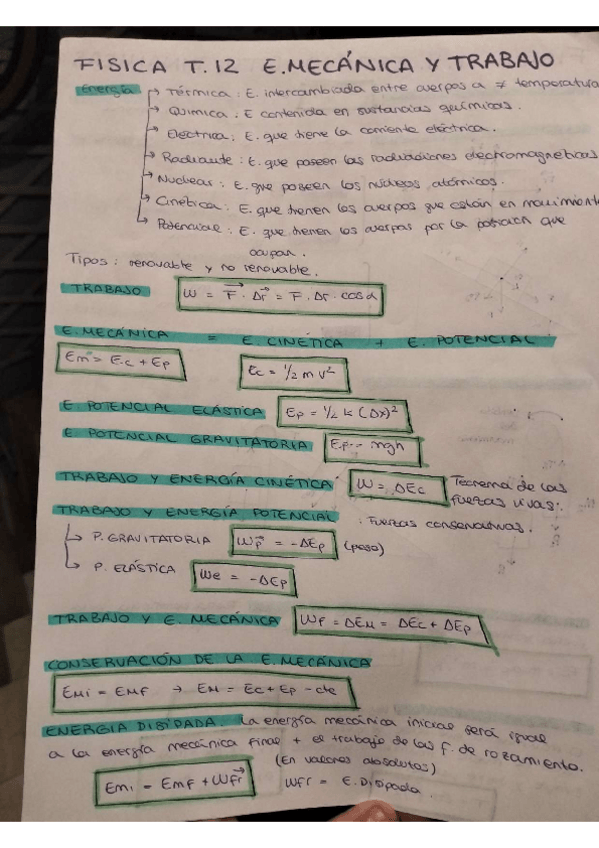 FISICA T.12 E.MECÁNICA Y TRABAJO
Energía → Térmica : E. intercambiada entre cuerpos a ≠ temperatura
→ Química : E contenida en sustancias químicas.
→ Eléctrica : E. que tiene la corriente eléctrica.
→ Radiante : E. que poseen las radiaciones electromagnéticas
→ Nuclear : E. que poseen los núcleos atómicos.
→ Cinética : E. que tienen los cuerpos que están en movimiento
→ Potencial : E. que tienen los cuerpos por la posición que
ocupan.
Tipos : renovable y no renovable.
TRABAJO W = F⃗ · Δr⃗ = F · Δr · cos α
E.MECÁNICA = E. CINÉTICA + E. POTENCIAL
Em = Ec + Ep Ec = 1/2 m v²
E POTENCIAL ELÁSTICA Ep = 1/2 k (Δx)²
E POTENCIAL GRAVITATORIA Ep = mgh
TRABAJO Y ENERGÍA CINÉTICA W = ΔEc Teorema de las
fuerzas vivas.
TRABAJO Y ENERGÍA POTENCIAL : Fuerzas conservativas.
→ P. GRAVITATORIA Wp⃗ = -ΔEp (peso)
→ P. ELÁSTICA We = -ΔEp
TRABAJO Y E. MECÁNICA WF = ΔEM = ΔEc + ΔEp
CONSERVACIÓN DE LA E.MECÁNICA
EMi = EMF → EM = Ec + Ep - cte
ENERGIA DISIDADA La energía mecánica inicial será igual
a la energía mecánica final + el trabajo de las f. de rozamiento.
(En valores absolutos)
Emi = EmF + Wfr⃗ Wfr = E. Disipada.